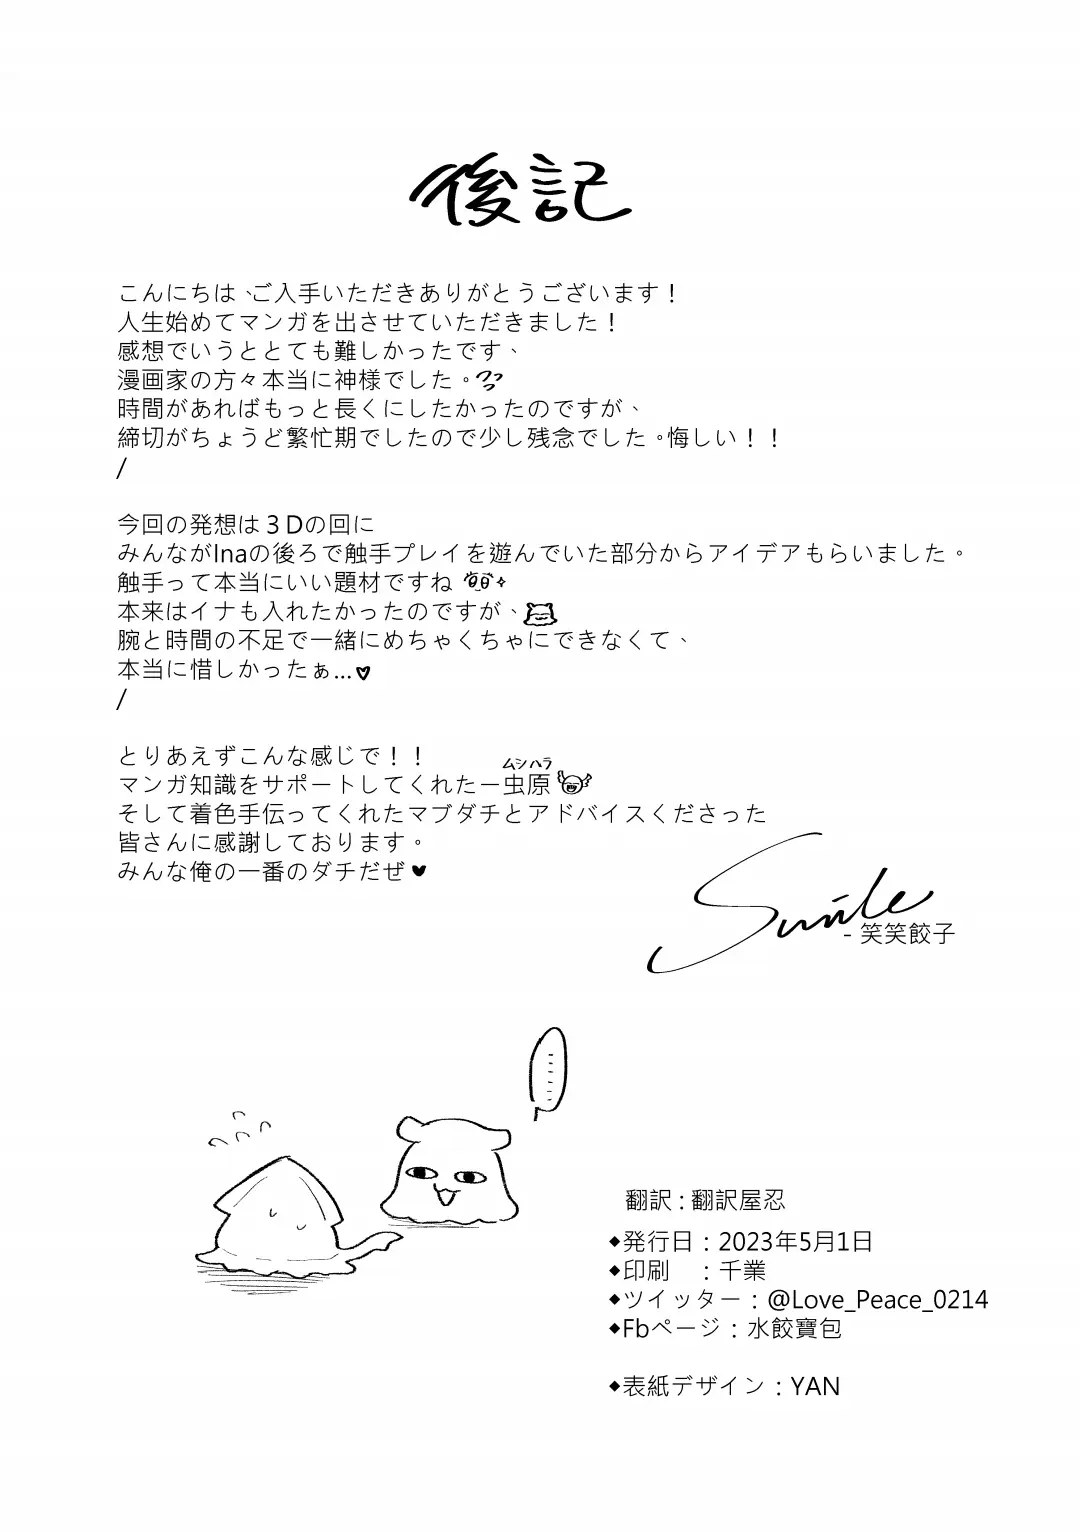 後記
こんにちは、ご入手いただきありがとうございます！
人生始めてマンガを出させていただきました！
感想でいうととても難しかったです、
漫画家の方々本当に神様でした。
時間があればもっと長くにしたかったのですが、
締切がちょうど繁忙期でしたので少し残念でした。悔しい！！
/
今回の発想は３Dの回に
みんながInaの後ろで触手プレイを遊んでいた部分からアイデアもらいました。
触手って本当にいい題材ですね
本来はイナも入れたかったのですが、
腕と時間の不足で一緒にめちゃくちゃにできなくて、
本当に惜しかったぁ...
/
とりあえずこんな感じで！！
ムシハラ
マンガ知識をサポートしてくれたー虫原
そして着色手伝ってくれたマブダチとアドバイスくださった
皆さんに感謝しております。
みんな俺の一番のダチだぜ♥
Smile
- 笑笑餃子
翻訳：翻訳屋忍
◆発行日：2023年5月1日
◆印刷　：千業
◆ツイッター：@Love_Peace_0214
◆Fbページ：水餃寶包
◆表紙デザイン：YAN